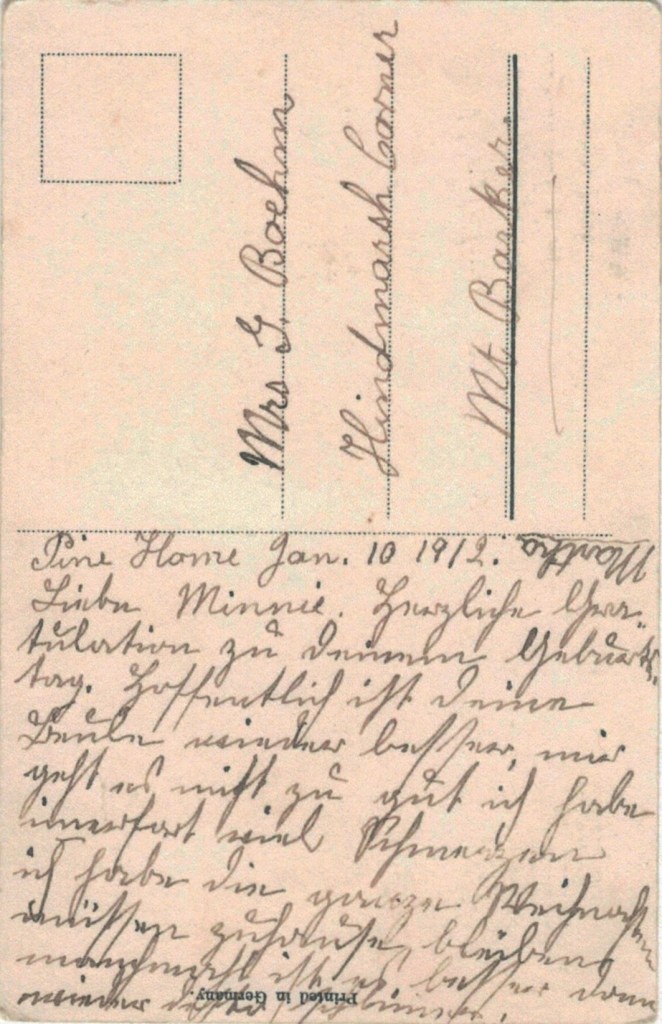 Mrs G. Boehm
Hindmarsh Corner
Mt Barker.
Pine Home Jan. 10 1912.
Liebe Minnie. Herzliche Gra-
tulation zu deinem Geburts-
tag. Hoffentlich ist deine
Beule wieder besser, mir
geht es nicht zu gut ich habe
immerfort viel Schmerzen
ich habe die ganze Weihnachten
müssen zuhause bleiben,
manchmahl ist es besser dann
wieder desto schlimmer.
Martha
Printed in Germany.